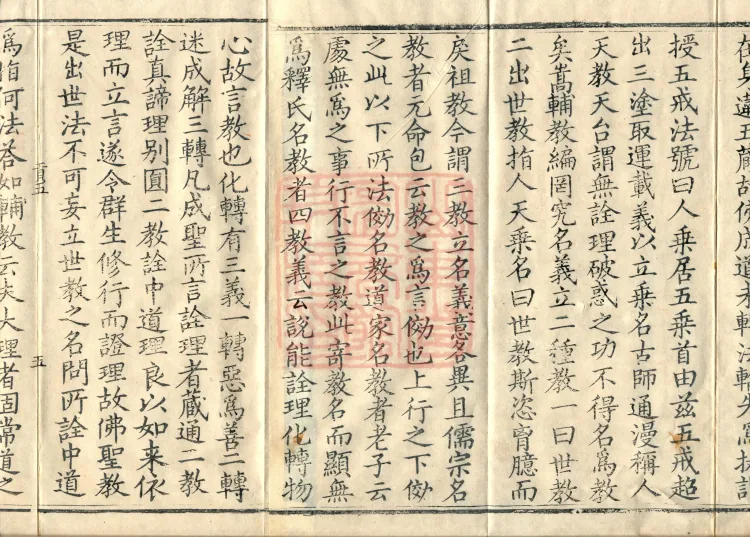 授五戒法號曰人乗居五乗首由兹五戒超
出三塗取運載義以立乗名古師通漫稱人
天教天台謂無詮理破惑之功不得名爲教
矣嵩輔教編罔究名義立二種教一曰世教
二出世教指人天乗名曰世教斯恣胷臆而
戾祖教今謂三教立名義意各異且儒宗名
教者元命包云教之爲言傚也上行之下傚
之此以下所法傚名教道家名教者老子云
處無爲之事行不言之教此寄教名而顯無
爲釋氏名教者四教義云說能詮理化轉物
心故言教也化轉有三義一轉惡爲善二轉
迷成解三轉凡成聖所言詮理者藏通二教
詮真諦理别圓二教詮中道理良以如来依
理而立言遂令群生修行而證理故佛聖教
是出世法不可妄立世教之名問所詮中道
爲指何法荅如輔教云夫大理者固常道之
五